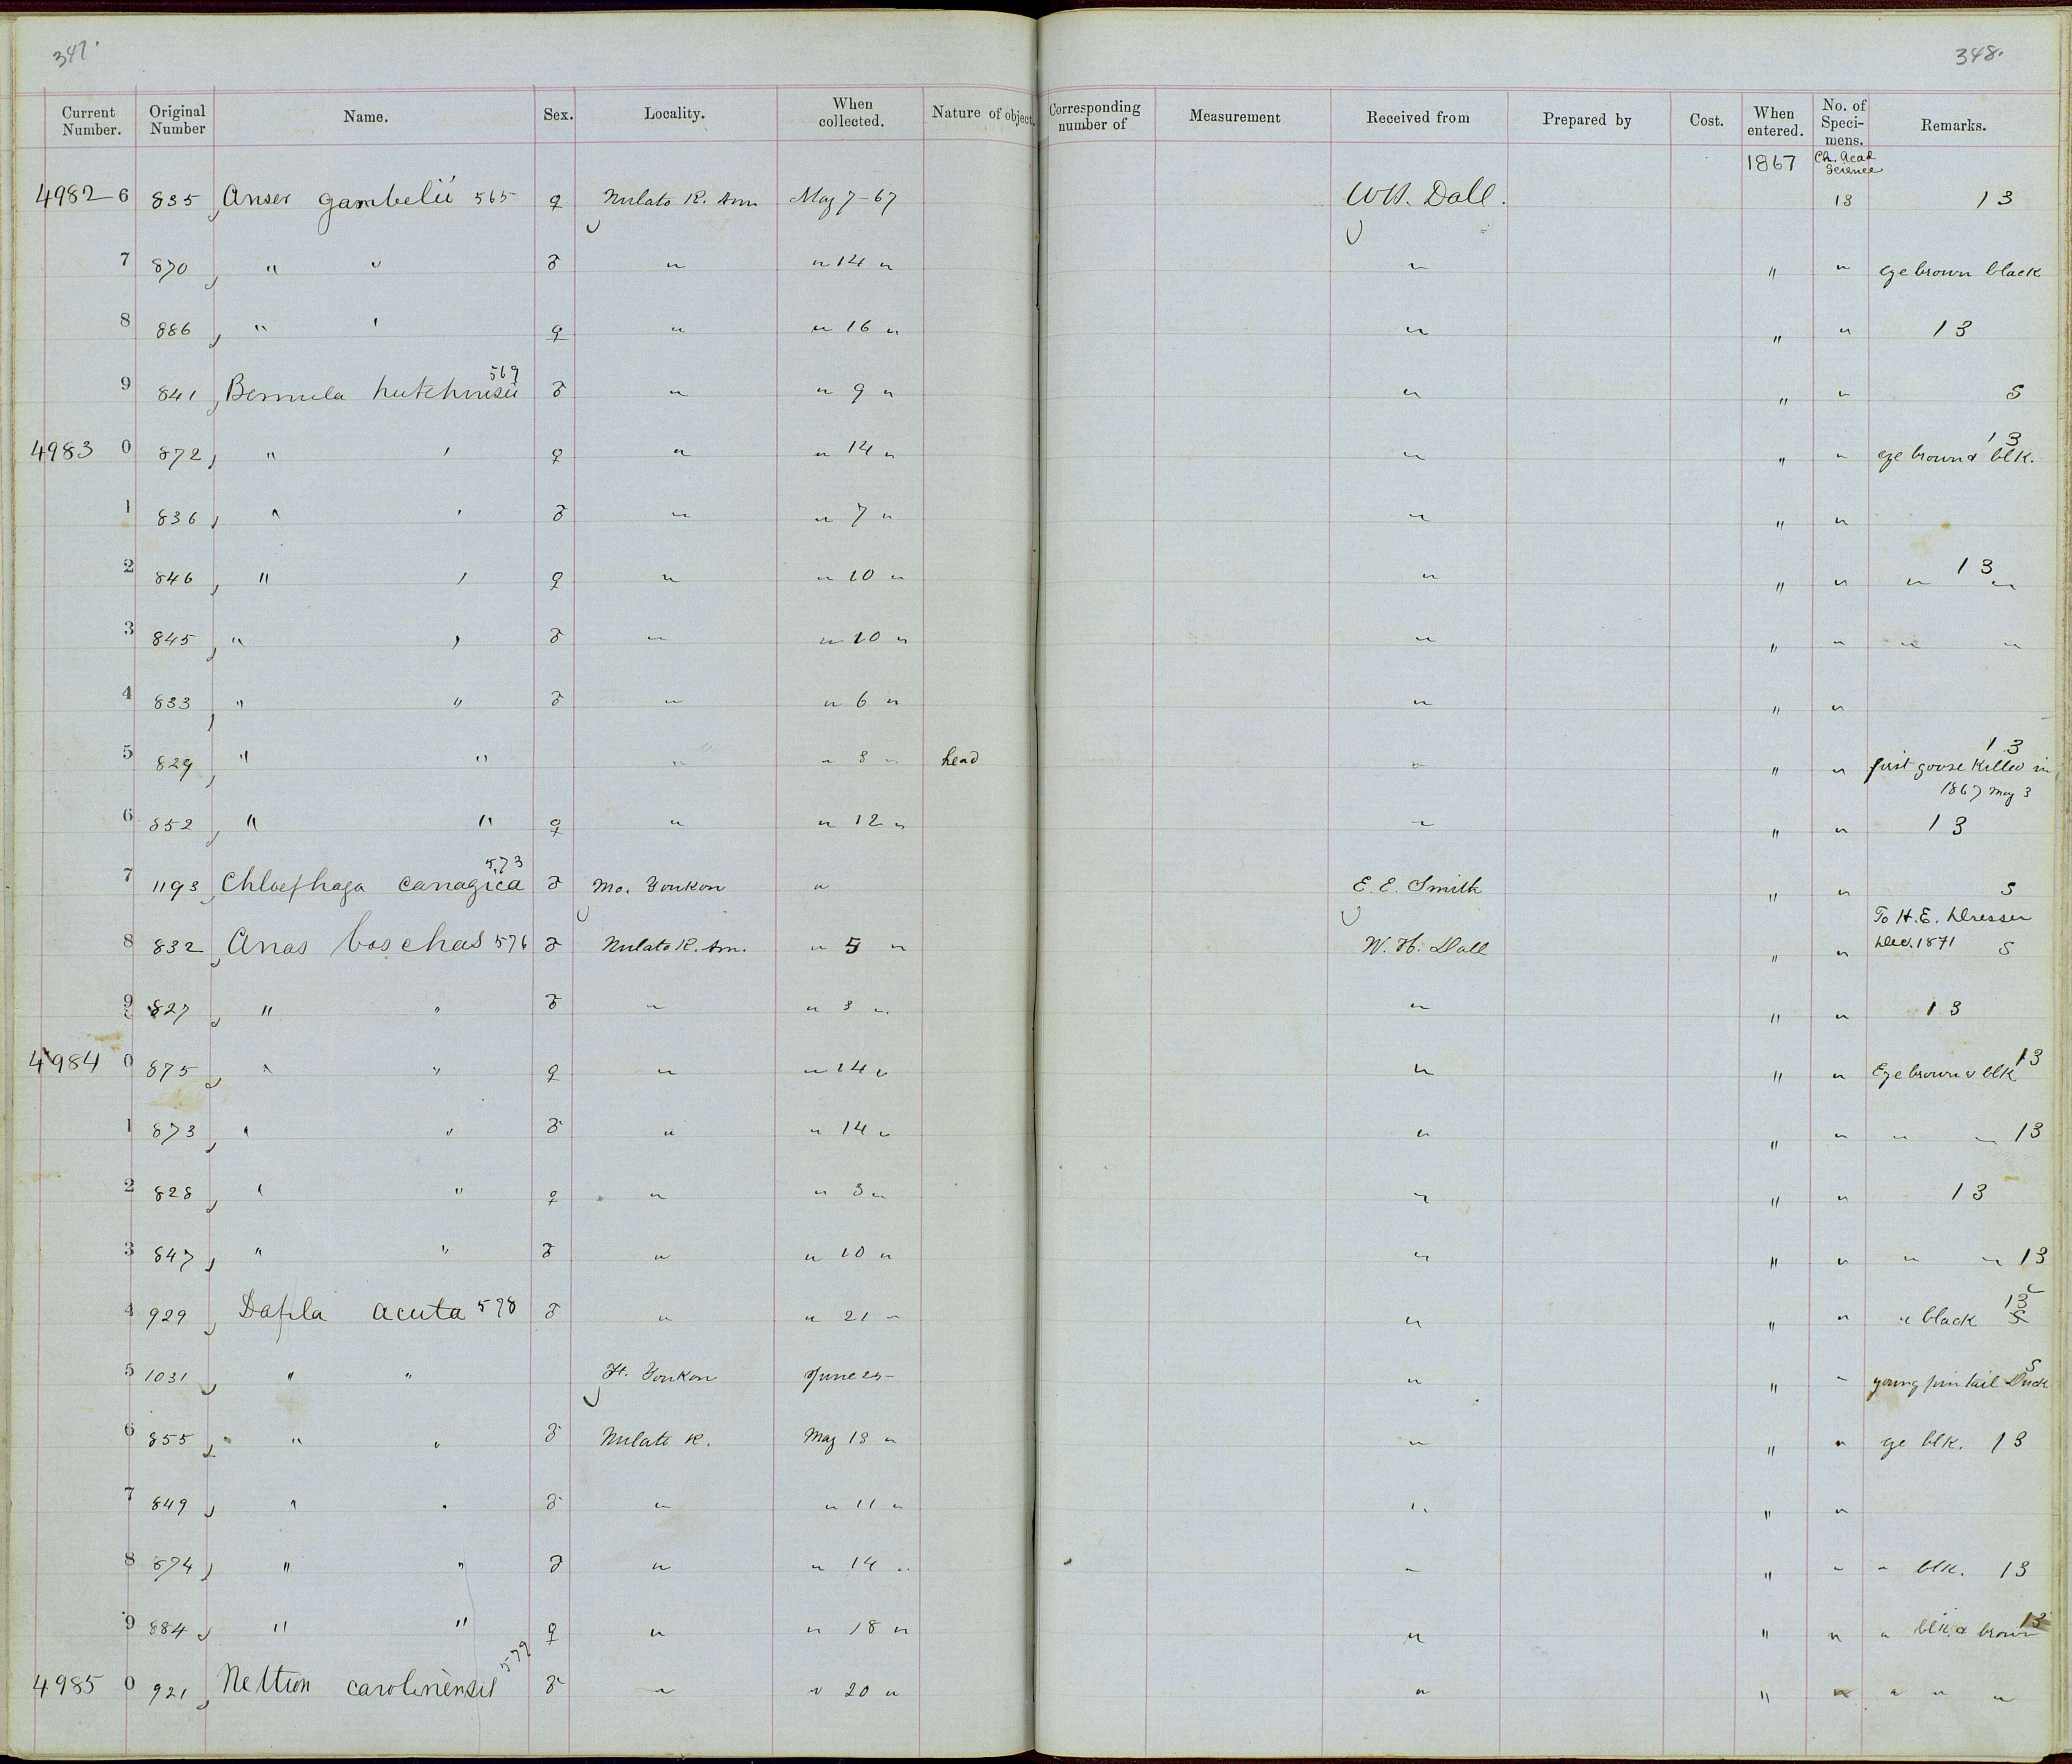 347. 348.
Current Number. Original Number Name. Sex. Locality. When collected. Nature of object. Corresponding number of Measurement Received from Prepared by Cost. When entered. No. of Speci-mens. Remarks.
1867 Ch. Acad Science
4982 6 835 Anser gambelii 565 ♀ Nulato R. Am. May 7-67 W.H. Dall. 13 13
7 870 " " ♂ " " 14 " " " " eye brown black
8 886 " " ♀ " " 16 " " " " 13
569
9 841 Bernicla hutchinsii ♂ " " 9 " " " " S
13
4983 0 872 " " ♀ " " 14 " " " " eye brown & blk.
1 836 " " ♂ " " 7 " " " "
2 846 " " ♀ " " 10 " " " " " 13 "
3 845 " " ♂ " " 10 " " " " " "
4 833 " " ♂ " " 6 " " " "
13
5 829 " " " " 3 " head " " " first goose killed in
1867 May 3
6 852 " " ♀ " " 12 " " " " 13
573
7 1193 Chloephaga canagica ♂ Mo. Youkon " E. E. Smith " " S
To H.E. Dresser
8 832 Anas boschas 576 ♂ Nulato R. Am. " 5 " W. H. Dall " " Dec. 1871 S
9 827 " " ♂ " " 3 " " " " 13
4984 0 875 " " ♀ " " 14 " " " " Eye brown & blk 13
1 873 " " ♂ " " 14 " " " " " " 13
2 828 " " ♀ " " 3 " " " " 13
3 847 " " ♂ " " 10 " " " " " " 13
4 929 Dafila acuta 578 ♂ " " 21 " " " " " black 13 S
5 1031 " " Ft. Youkon June 25 - " " " young pin tail Duck S
6 855 " " ♂ Nulato R. May 13 " " " " eye blk. 13
7 849 " " ♂ " " 11 " " " "
8 874 " " ♂ " " 14 " " " " " blk. 13
9 884 " " ♀ " " 18 " " " " " blk & brown 13
579
4985 0 921 Nettion carolinensis ♂ " " 20 " " " " " " "